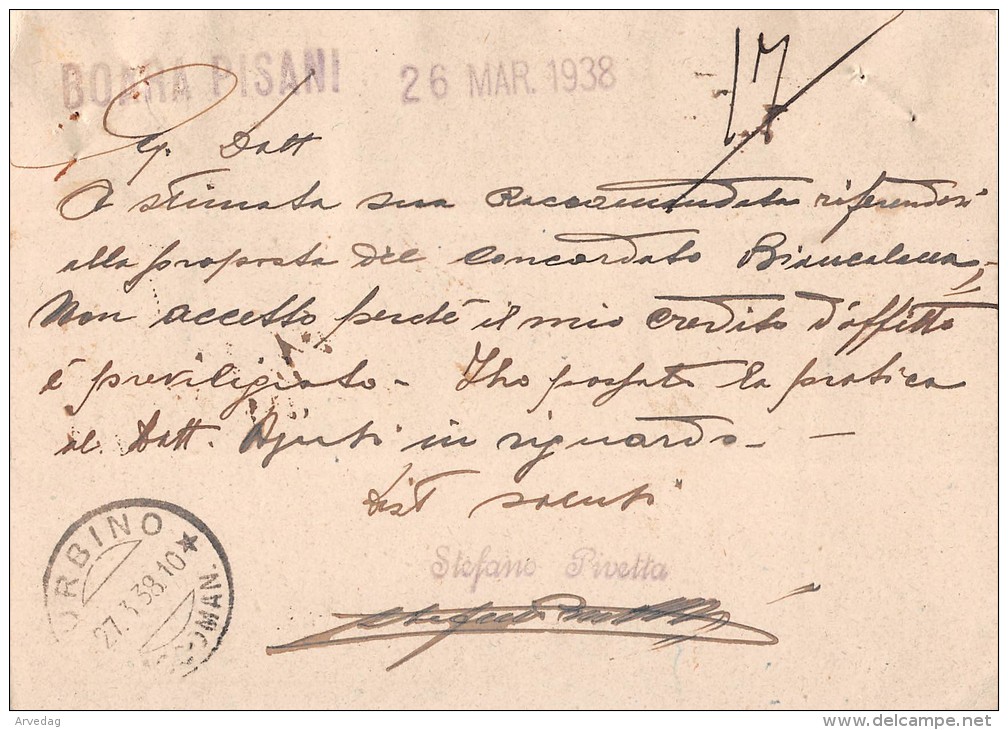 BOARA PISANI 26 MAR. 1938
17
Eg. Dott
A stimata sua Raccomandata riferendosi
alla proposta del concordato
Non accetto perché il mio credito d'affitto
è previligiato - Iho passato la pratica
al Dott. in riguardo -
Dist saluti
Stefano Pivetta
URBINO
27.3.38.10
Arvedag
www.delcampe.net